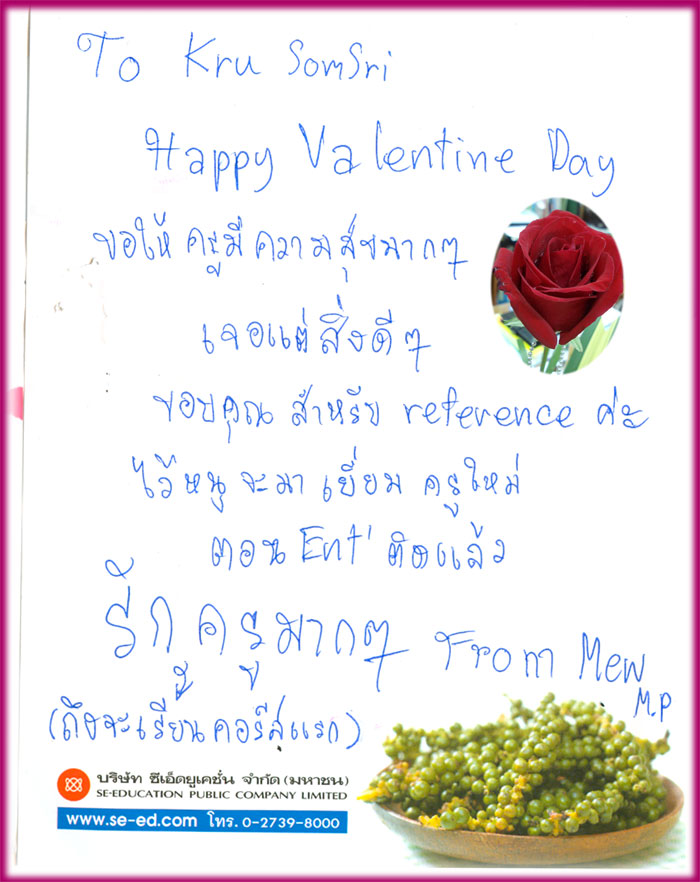 To Kru Somsri
Happy Valentine Day
ขอให้ ครูมีความสุขมากๆ
เจอแต่สิ่งดีๆ
ขอบคุณ สำหรับ reference ค่ะ
ไว้หนู จะมา เยี่ยม ครูใหม่
ตอน Ent' ติดแล้ว
รักครูมากๆ From Mew
M.P
(ถึงจะเรียนคอร์สแรก)
บริษัท ซีเอ็ดยูเคชั่น จำกัด (มหาชน)
SE-EDUCATION PUBLIC COMPANY LIMITED
www.se-ed.com โทร. 0-2739-8000